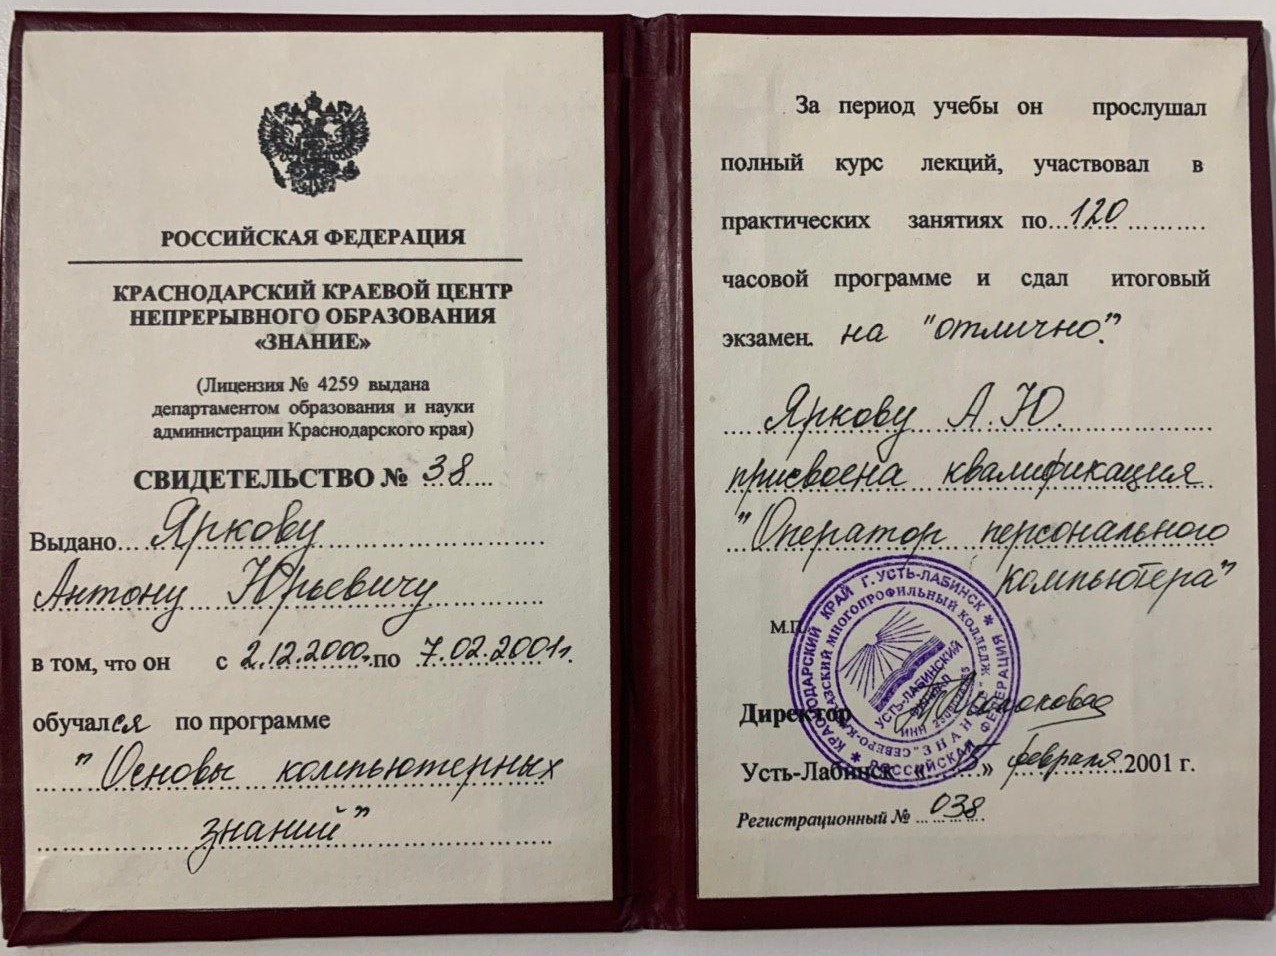 РОССИЙСКАЯ ФЕДЕРАЦИЯ
КРАСНОДАРСКИЙ КРАЕВОЙ ЦЕНТР
НЕПРЕРЫВНОГО ОБРАЗОВАНИЯ
«ЗНАНИЕ»
(Лицензия № 4259 выдана
департаментом образования и науки
администрации Краснодарского края)
СВИДЕТЕЛЬСТВО № 38
Выдано Яркову
Антону Юрьевичу
в том, что он с 2.12.2000 по 7.02.2001г.
обучался по программе
"Основы компьютерных
знаний"
За период учебы он прослушал
полный курс лекций, участвовал в
практических занятиях по 120
часовой программе и сдал итоговый
экзамен. на "отлично".
Яркову А.Ю.
присвоена квалификация
"Оператор персонального
компьютера"
М.П.
Директор
Усть-Лабинск « » февраля 2001 г.
Регистрационный № 038
КРАСНОДАРСКИЙ КРАЙ Г. УСТЬ-ЛАБИНСК * РОССИЙСКАЯ ФЕДЕРАЦИЯ *
СЕВЕРО-КАВКАЗСКИЙ МНОГОПРОФИЛЬНЫЙ КОЛЛЕДЖ
УСТЬ-ЛАБИНСКИЙ
ФИЛИАЛ
ИНН